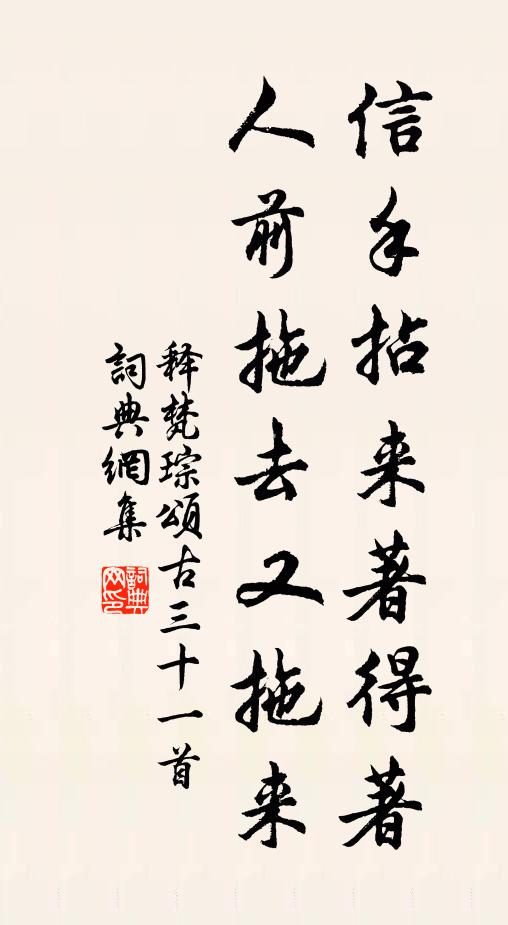 信手拈来著得著
人前拖去又拖来
释梵琮頌古三十一首
詞典網集
詞典網印